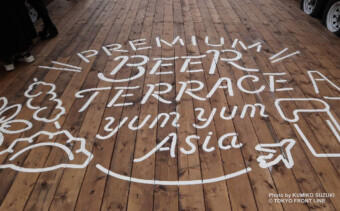 PREMIUM
BEER
TERRACE A
yum yum
Asia
Photo by KUMIKO SUZUKI
© TOKYO FRONT LINE